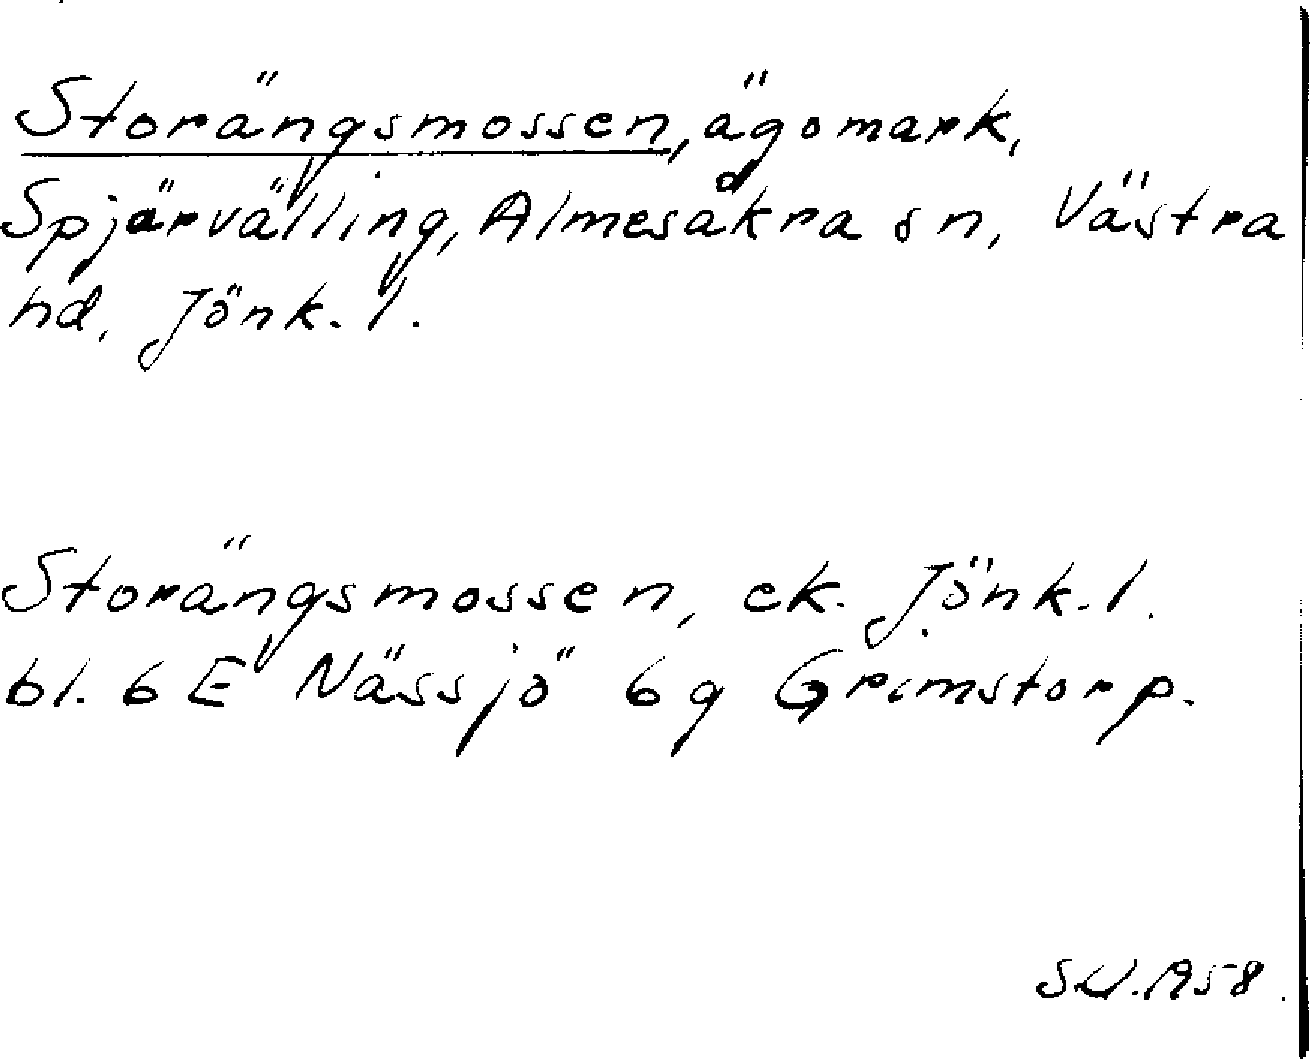 Storängsmossen, ägomark,
Spjärvälling, Almesåkra sn, Västra
hd, Jönk. l.
Storängsmossen, ek. Jönk. l.
bl. 6 E Nässjö 6 g Grimstorp.
A58.